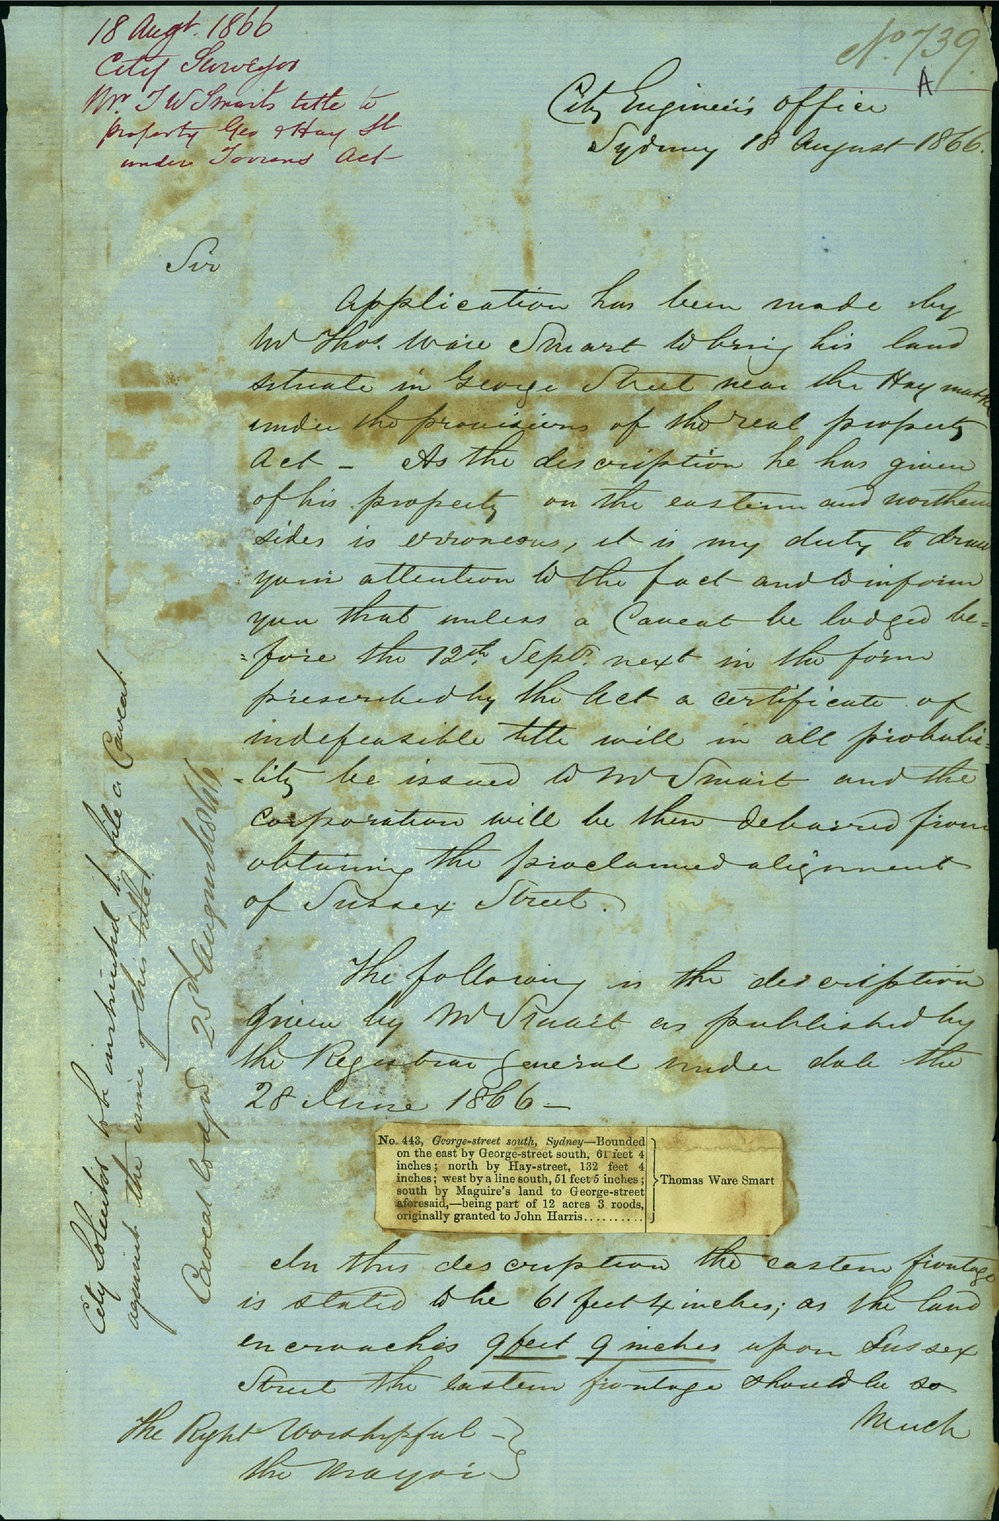 18 Augt. 1866
City Surveyor
Mr. T W Smart's title to
property Geo & Hay St
under Torrens Act
No. 739.
A
City Engineer's Office
Sydney 18 August 1866.
Sir
Application has been made by
Mr Thos. Ware Smart to bring his land
situate in George Street near the Hay market
under the provisions of the real property
Act - As the discription he has given
of his property on the eastern and northern
sides is erroneous, it is my duty to draw
your attention to the fact and to inform
you that unless a Caveat be lodged be=
=fore the 12th. Septr. next in the form
prescribed by the Act a certificate of
indefeasible title will in all probabi=
=lity be issued to Mr Smart and the
Corporation will be then debarred from
obtaining the proclaimed alignment
of Sussex Street.
The following is the description
given by Mr Smart as published by
the Registrar General under date the
28 June 1866 -
No. 443, George-street south, Sydney—Bounded
on the east by George-street south, 61 feet 4
inches; north by Hay-street, 132 feet 4
inches; west by a line south, 51 feet 5 inches;
south by Maguire's land to George-street
aforesaid,—being part of 12 acres 3 roods,
originally granted to John Harris..........
Thomas Ware Smart
In this description the eastern frontage
is stated to be 61 feet 4 inches; as the land
encroaches 9 feet 9 inches upon Sussex
Street the eastern frontage should be so
much
The Right Worshipful -
the Mayor
City Solicitor to be instructed to file a Caveat
against the issue of this title.
Caveat lodged 25th August 1866